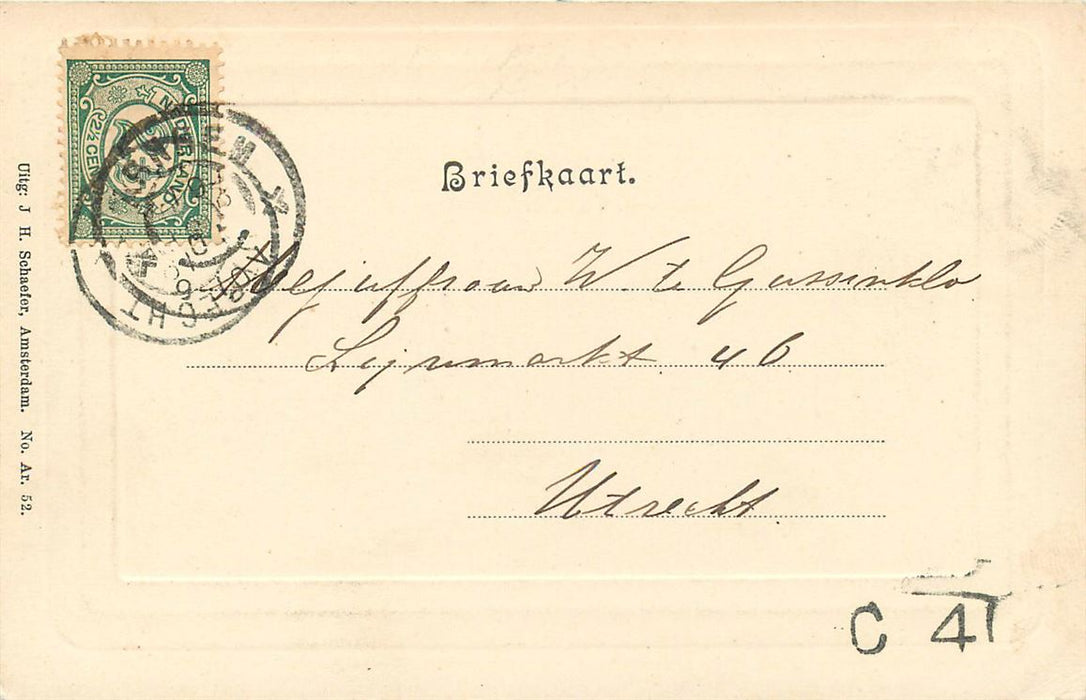 Briefkaart.
Mejuffrouw W. te Gussinklo
Lijnmarkt 46
Utrecht
C 4
Uitg: J. H. Schaefer, Amsterdam. No. Ar. 52.
NEDERLAND
2½ CENT
UTRECHT